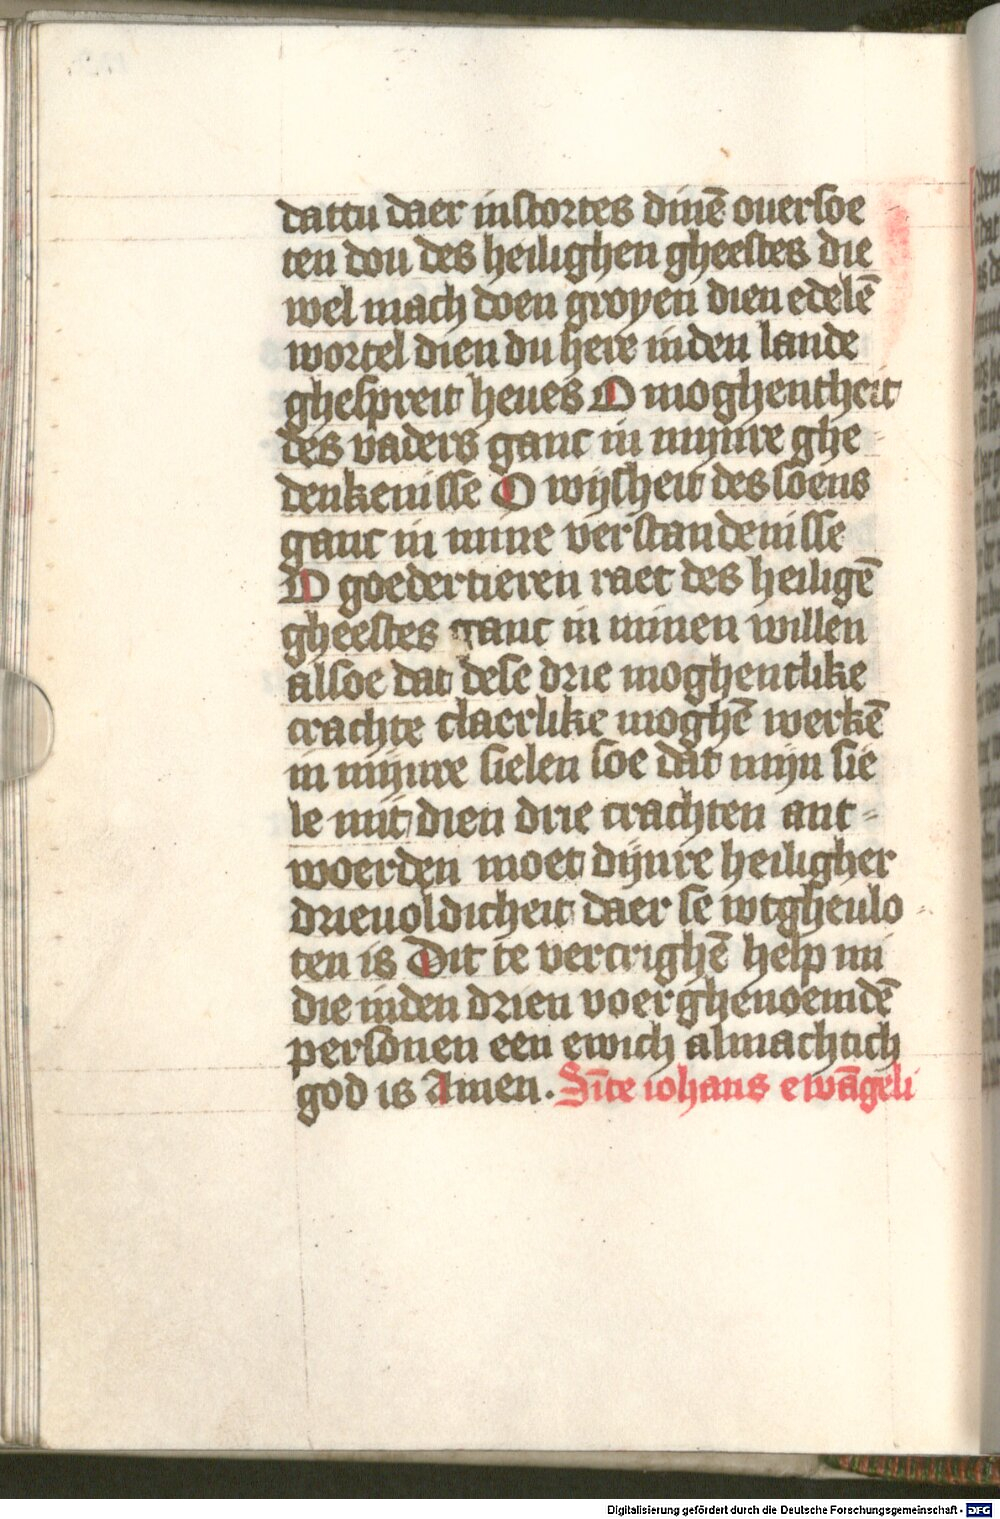 dattu daer instortes dinē ouersoe
ten dou des heilighen gheestes die
wel mach doen groyen dien edelē
wortel dien du here inden lande
ghespreit heues O moghentheit
des vaders ganc in mynre ghe
denkenisse O wijsheit des soens
ganc in mine verstandenisse
O goedertieren raet des heiligē
gheestes ganc in minen willen
alsoe dat dese drie moghentlike
crachte claerlike moghē werkē
in mijnre sielen soe dat mijn sie
le mit dien drie crachten ant-
woerden moet dijnre heiligher
drieuoldicheit daer se wtgheulo
ten is Dit te vercrighē help mi
die inden drien voerghenoemdē
personen een ewich almachtich
god is Amen. Sīte iohans ewāgeli
Digitalisierung gefördert durch die Deutsche Forschungsgemeinschaft - DFG